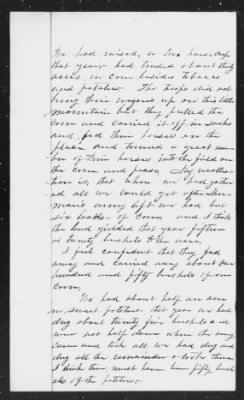 We had raised, a two horse crop
that year had tended about thirty
acres, in corn besides Tobacco
and potatoes. The troops did not
bring their wagons up on this little
mountain but they pulled the
corn and carried it off in sacks
and fed their horses on the
place and turned a great num-
ber of their horses into the field on
the corn and peas. My recollec-
tion is, that when we had gather-
ed all we could get after Sher-
mans army left we had but
six loads of Corn, and I think
the land yielded that year fifteen
or twenty bushels to the acre,
I feel confident that they fed
away and carried away about One
hundred and fifty bushels of our
Corn,
We had about half an acre
in sweet potatoes that year we had
dug about twenty five bushels and
was not half done when the army
came and took all we had dug and
dug all the remainder & took them.
I think there must have been fifty bush
els of the potatoes.